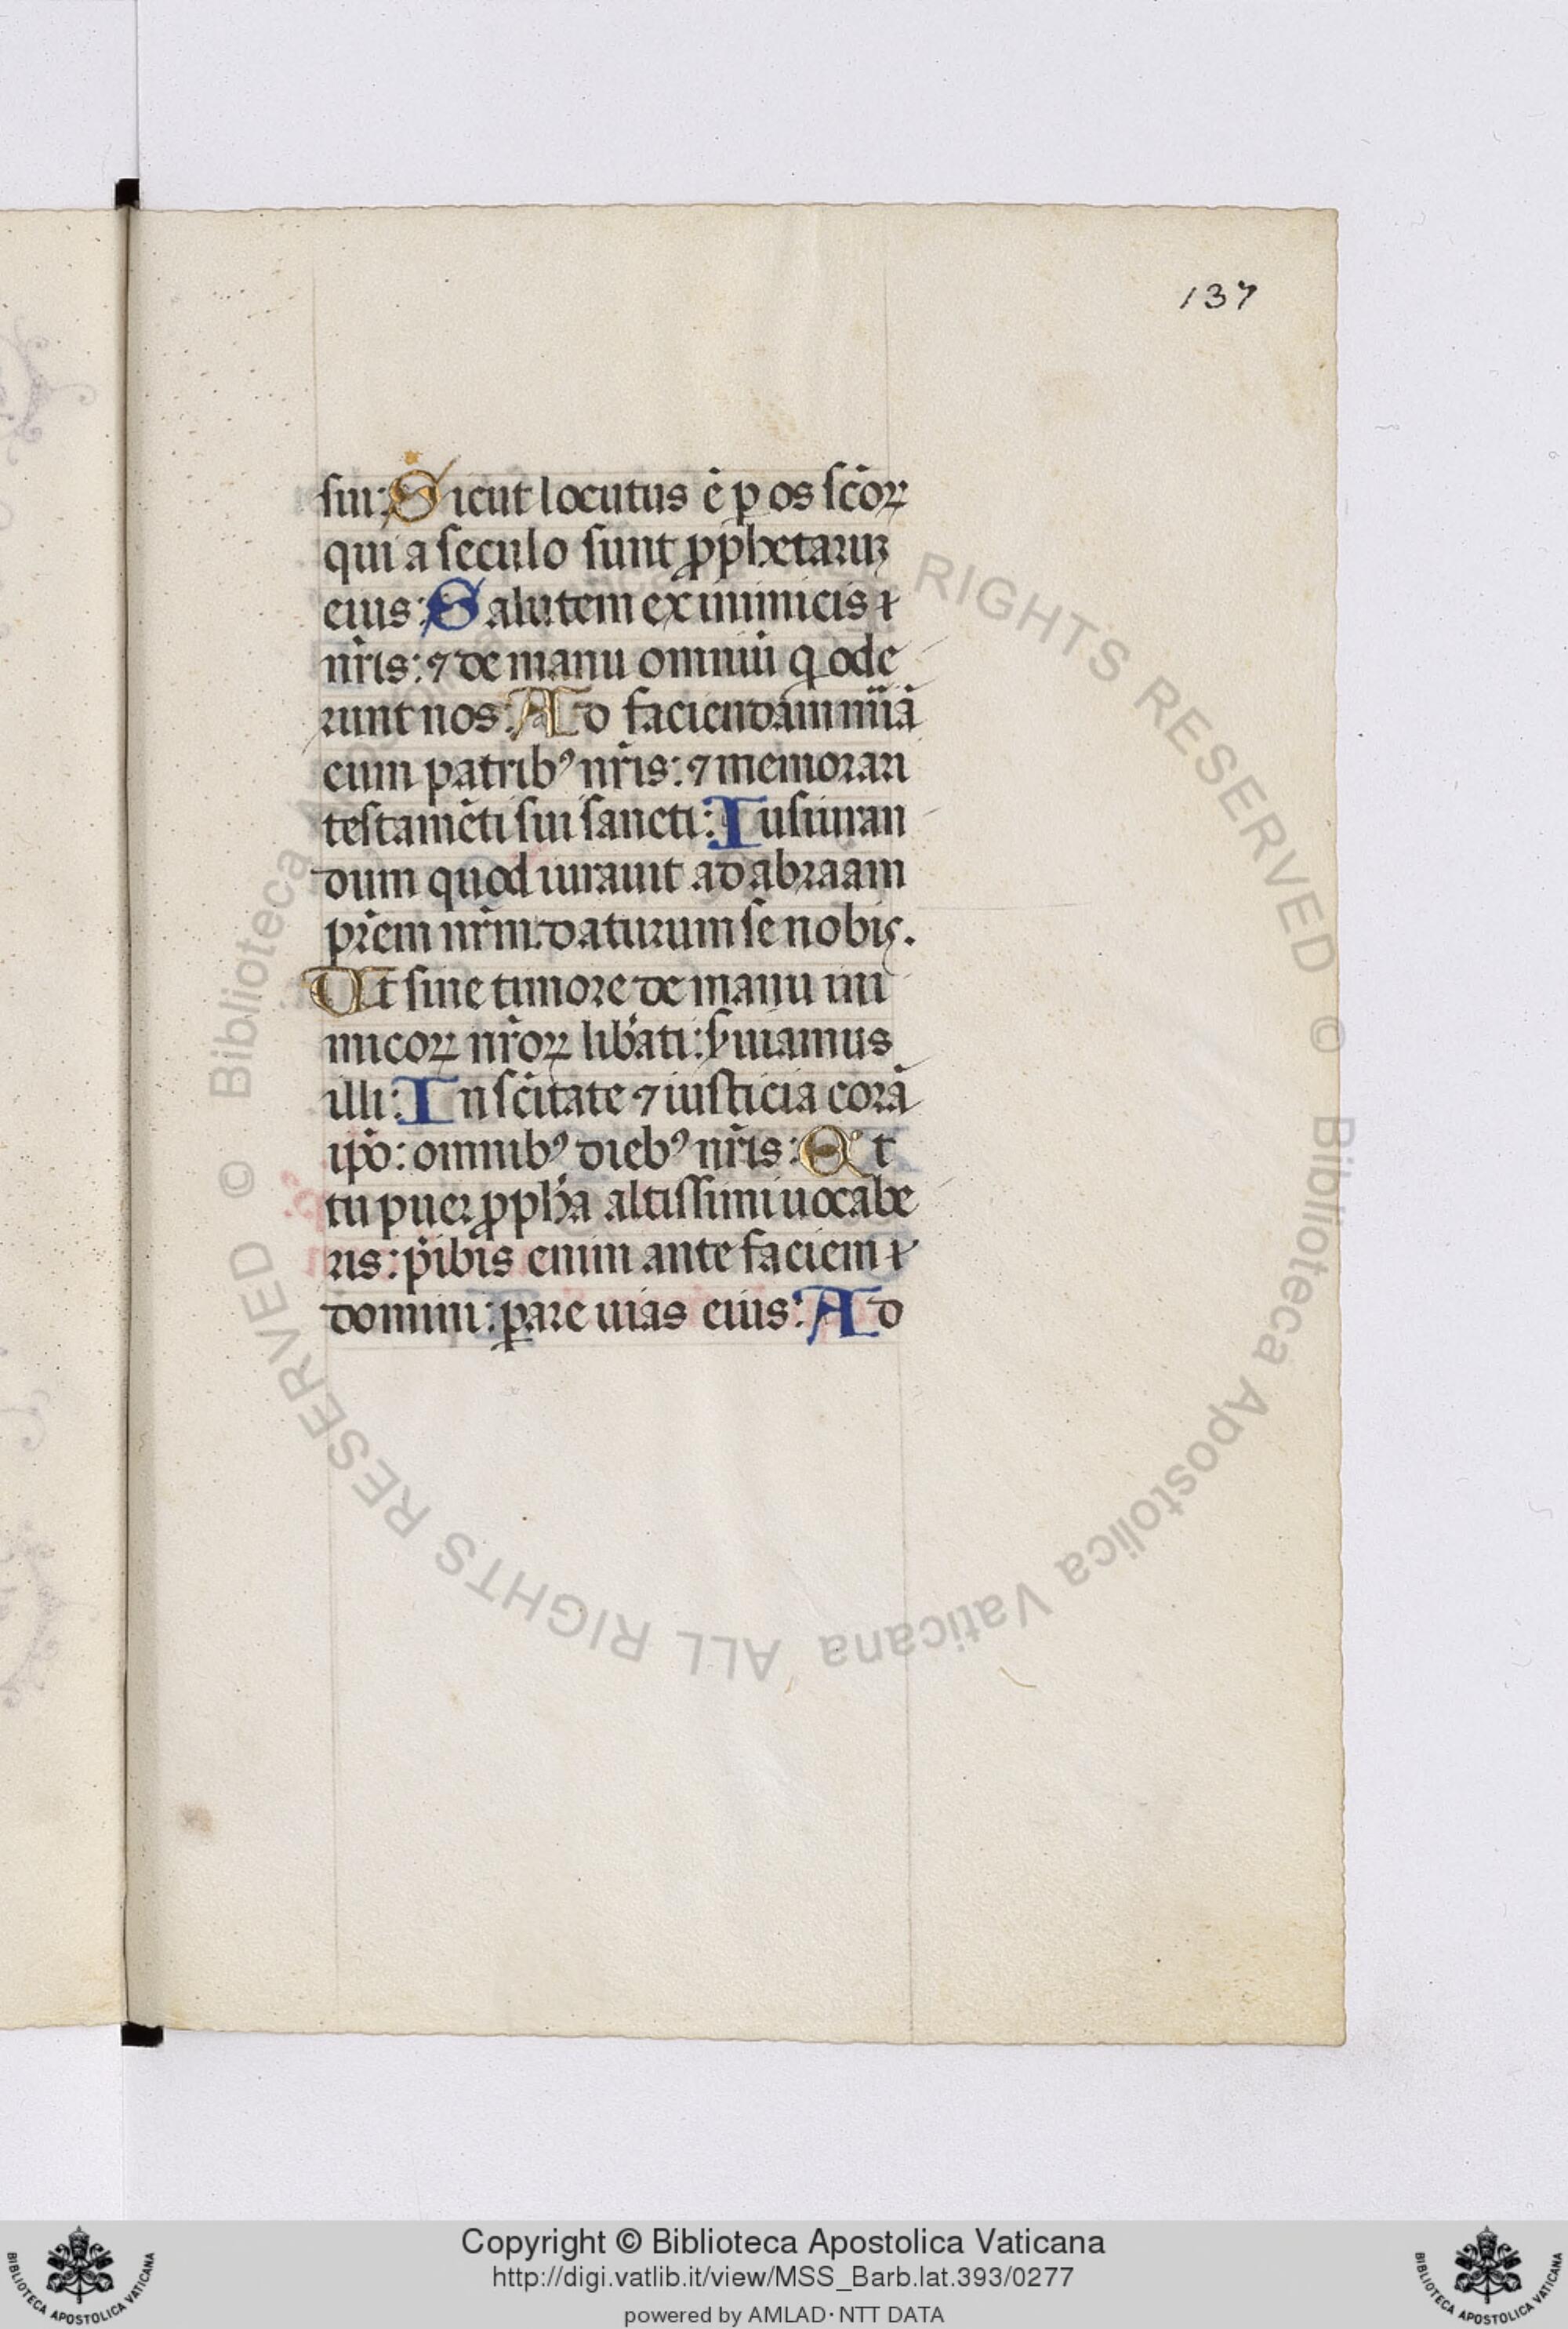 137
sui: Sicut locutus ē p os scōꝝ
qui a seculo sunt ꝓphetaruꝫ
eius: Salutem ex inimicis
nr̄is: ⁊ de manu omniū q ode
runt nos: Ad faciendam mīaȝ
cum patribꝰ nr̄is: ⁊ memorari
testamēti sui sancti: Iusiuran
dum quod iurauit ad abraam
pr̄em nr̄m: daturum se nobis.
Ut sine timore de manu ini
micoꝝ nr̄oꝝ lib̄ati: s̄uiamus
illi: In sc̄itate ⁊ iusticia corā
ip̄o: omnibꝰ diebꝰ nr̄is: Et
tu puer ꝓph̄a altissimi uocabe
ris: p̄ibis enim ante faciem
domini: ꝑare uias eius: Ad
© Biblioteca Apostolica Vaticana ALL RIGHTS RESERVED © Biblioteca Apostolica Vaticana ALL RIGHTS RESERVED
Copyright © Biblioteca Apostolica Vaticana
http://digi.vatlib.it/view/MSS_Barb.lat.393/0277
powered by AMLAD·NTT DATA
BIBLIOTECA APOSTOLICA VATICANA
BIBLIOTECA APOSTOLICA VATICANA